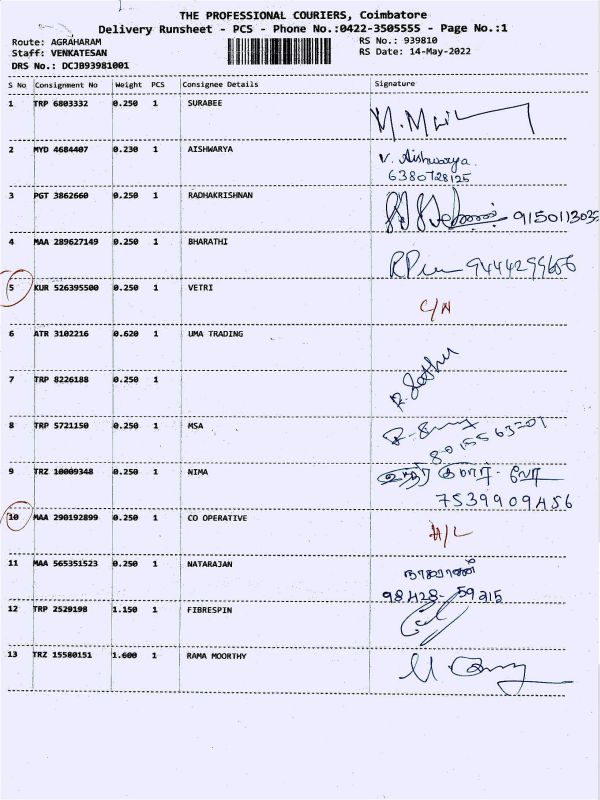 THE PROFESSIONAL COURIERS, Coimbatore
Delivery Runsheet - PCS - Phone No.:0422-3505555 - Page No.:1
Route: AGRAHARAM
RS No.: 939810
Staff: VENKATESAN
RS Date: 14-May-2022
DRS No.: DCJB93981001
S No Consignment No Weight PCS Consignee Details Signature
1 TRP 6803332 0.250 1 SURABEE
2 MYD 4684407 0.230 1 AISHWARYA V. Aishwarya
6380728125
3 PGT 3862660 0.250 1 RADHAKRISHNAN 9150113035
4 MAA 289627149 0.250 1 BHARATHI 9444299656
5 KUR 526395500 0.250 1 VETRI C/N
6 ATR 3102216 0.620 1 UMA TRADING
7 TRP 8226188 0.250 1
8 TRP 5721150 0.250 1 MSA
9 TRZ 10009348 0.250 1 NIMA
7539909456
10 MAA 290192899 0.250 1 CO OPERATIVE H/L
11 MAA 565351523 0.250 1 NATARAJAN
98428-59315
12 TRP 2529198 1.150 1 FIBRESPIN
13 TRZ 15580151 1.600 1 RAMA MOORTHY